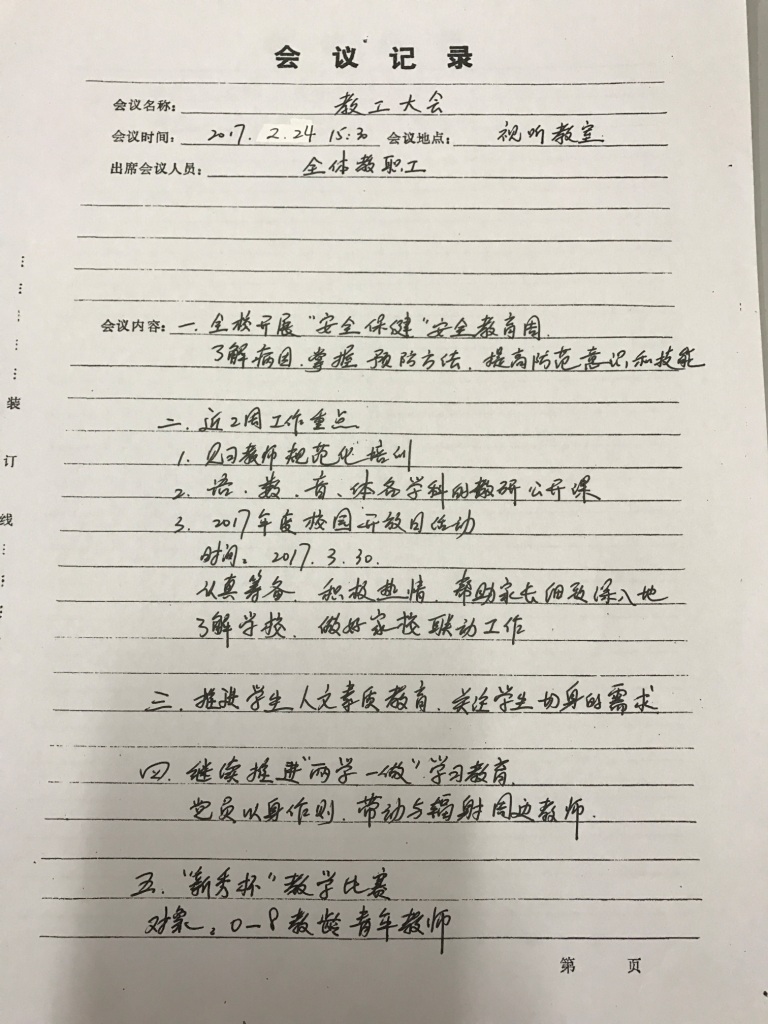 会议记录
会议名称：教工大会
会议时间：2017.2.24 15:30 会议地点：视听教室
出席会议人员：全体教职工
会议内容：一.全校开展“安全保健”安全教育周.
了解病因.掌握预防方法.提高防范意识和技能
二.近2周工作重点
1.见习教师规范化培训
2.语.数.音、体各学科的教研公开课
3.2017年度校园开放日活动
时间：2017.3.30.
认真筹备.积极热情.帮助家长细致深入地
了解学校.做好家校联动工作
三.推进学生人文素质教育.关注学生切身的需求
四.继续推进“两学一做”学习教育.
党员以身作则.带动与辐射周边教师.
五.“新秀杯”教学比赛
对象：0-8教龄青年教师
第 页
装订线